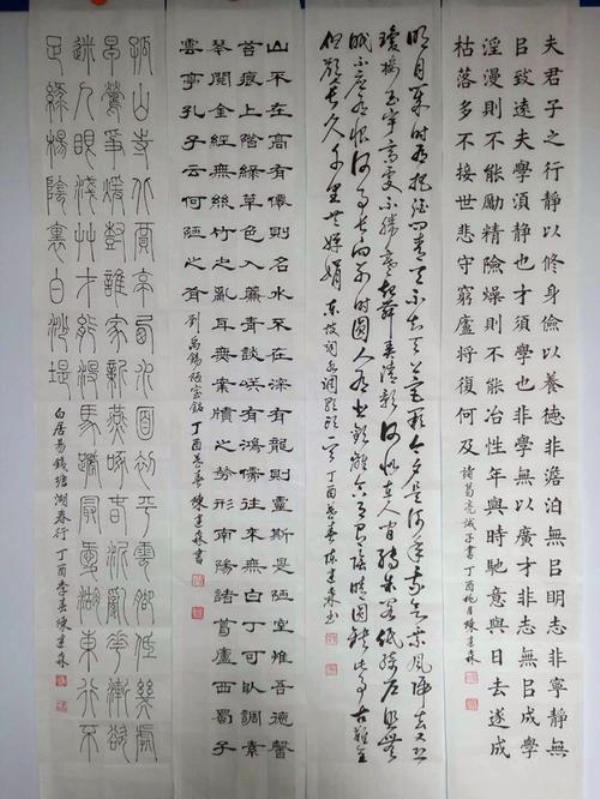 夫君子之行靜以修身儉以養德非澹泊無㠯明志非寧靜無
㠯致遠夫學須靜也才須學也非學無以廣才非志無㠯成學
淫漫則不能勵精險燥則不能冶性年與時馳意與日去遂成
枯落多不接世悲守窮廬將復何及 諸葛亮誡子書 丁酉桃月陳建森
明月幾時有把酒問青天不知天上宮闕今夕是何年我欲乘風歸去又恐
瓊樓玉宇高處不勝寒起舞弄清影何似在人間轉朱閣低綺戶照無
眠不應有恨何事長向別時圓人有悲歡離合月有陰晴圓缺此事古難全
但願人長久千里共嬋娟 東坡詞水調歌頭一首 丁酉暮春陳建森書
山不在高有僊則名水不在深有龍則靈斯是陋室惟吾德馨
苔痕上階綠草色入簾青談笑有鴻儒往來無白丁可以調素
琴閱金經無絲竹之亂耳無案牘之勞形南陽諸葛廬西蜀子
雲亭孔子云何陋之有 劉禹錫陋室銘 丁酉暮春陳建森書
孤山寺北賈亭西水面初平雲腳低幾處
早鶯爭暖樹誰家新燕啄春泥亂花漸欲
迷人眼淺草才能沒馬蹄最愛湖東行不
足綠楊陰裏白沙堤 白居易錢塘湖春行 丁酉季春陳建森